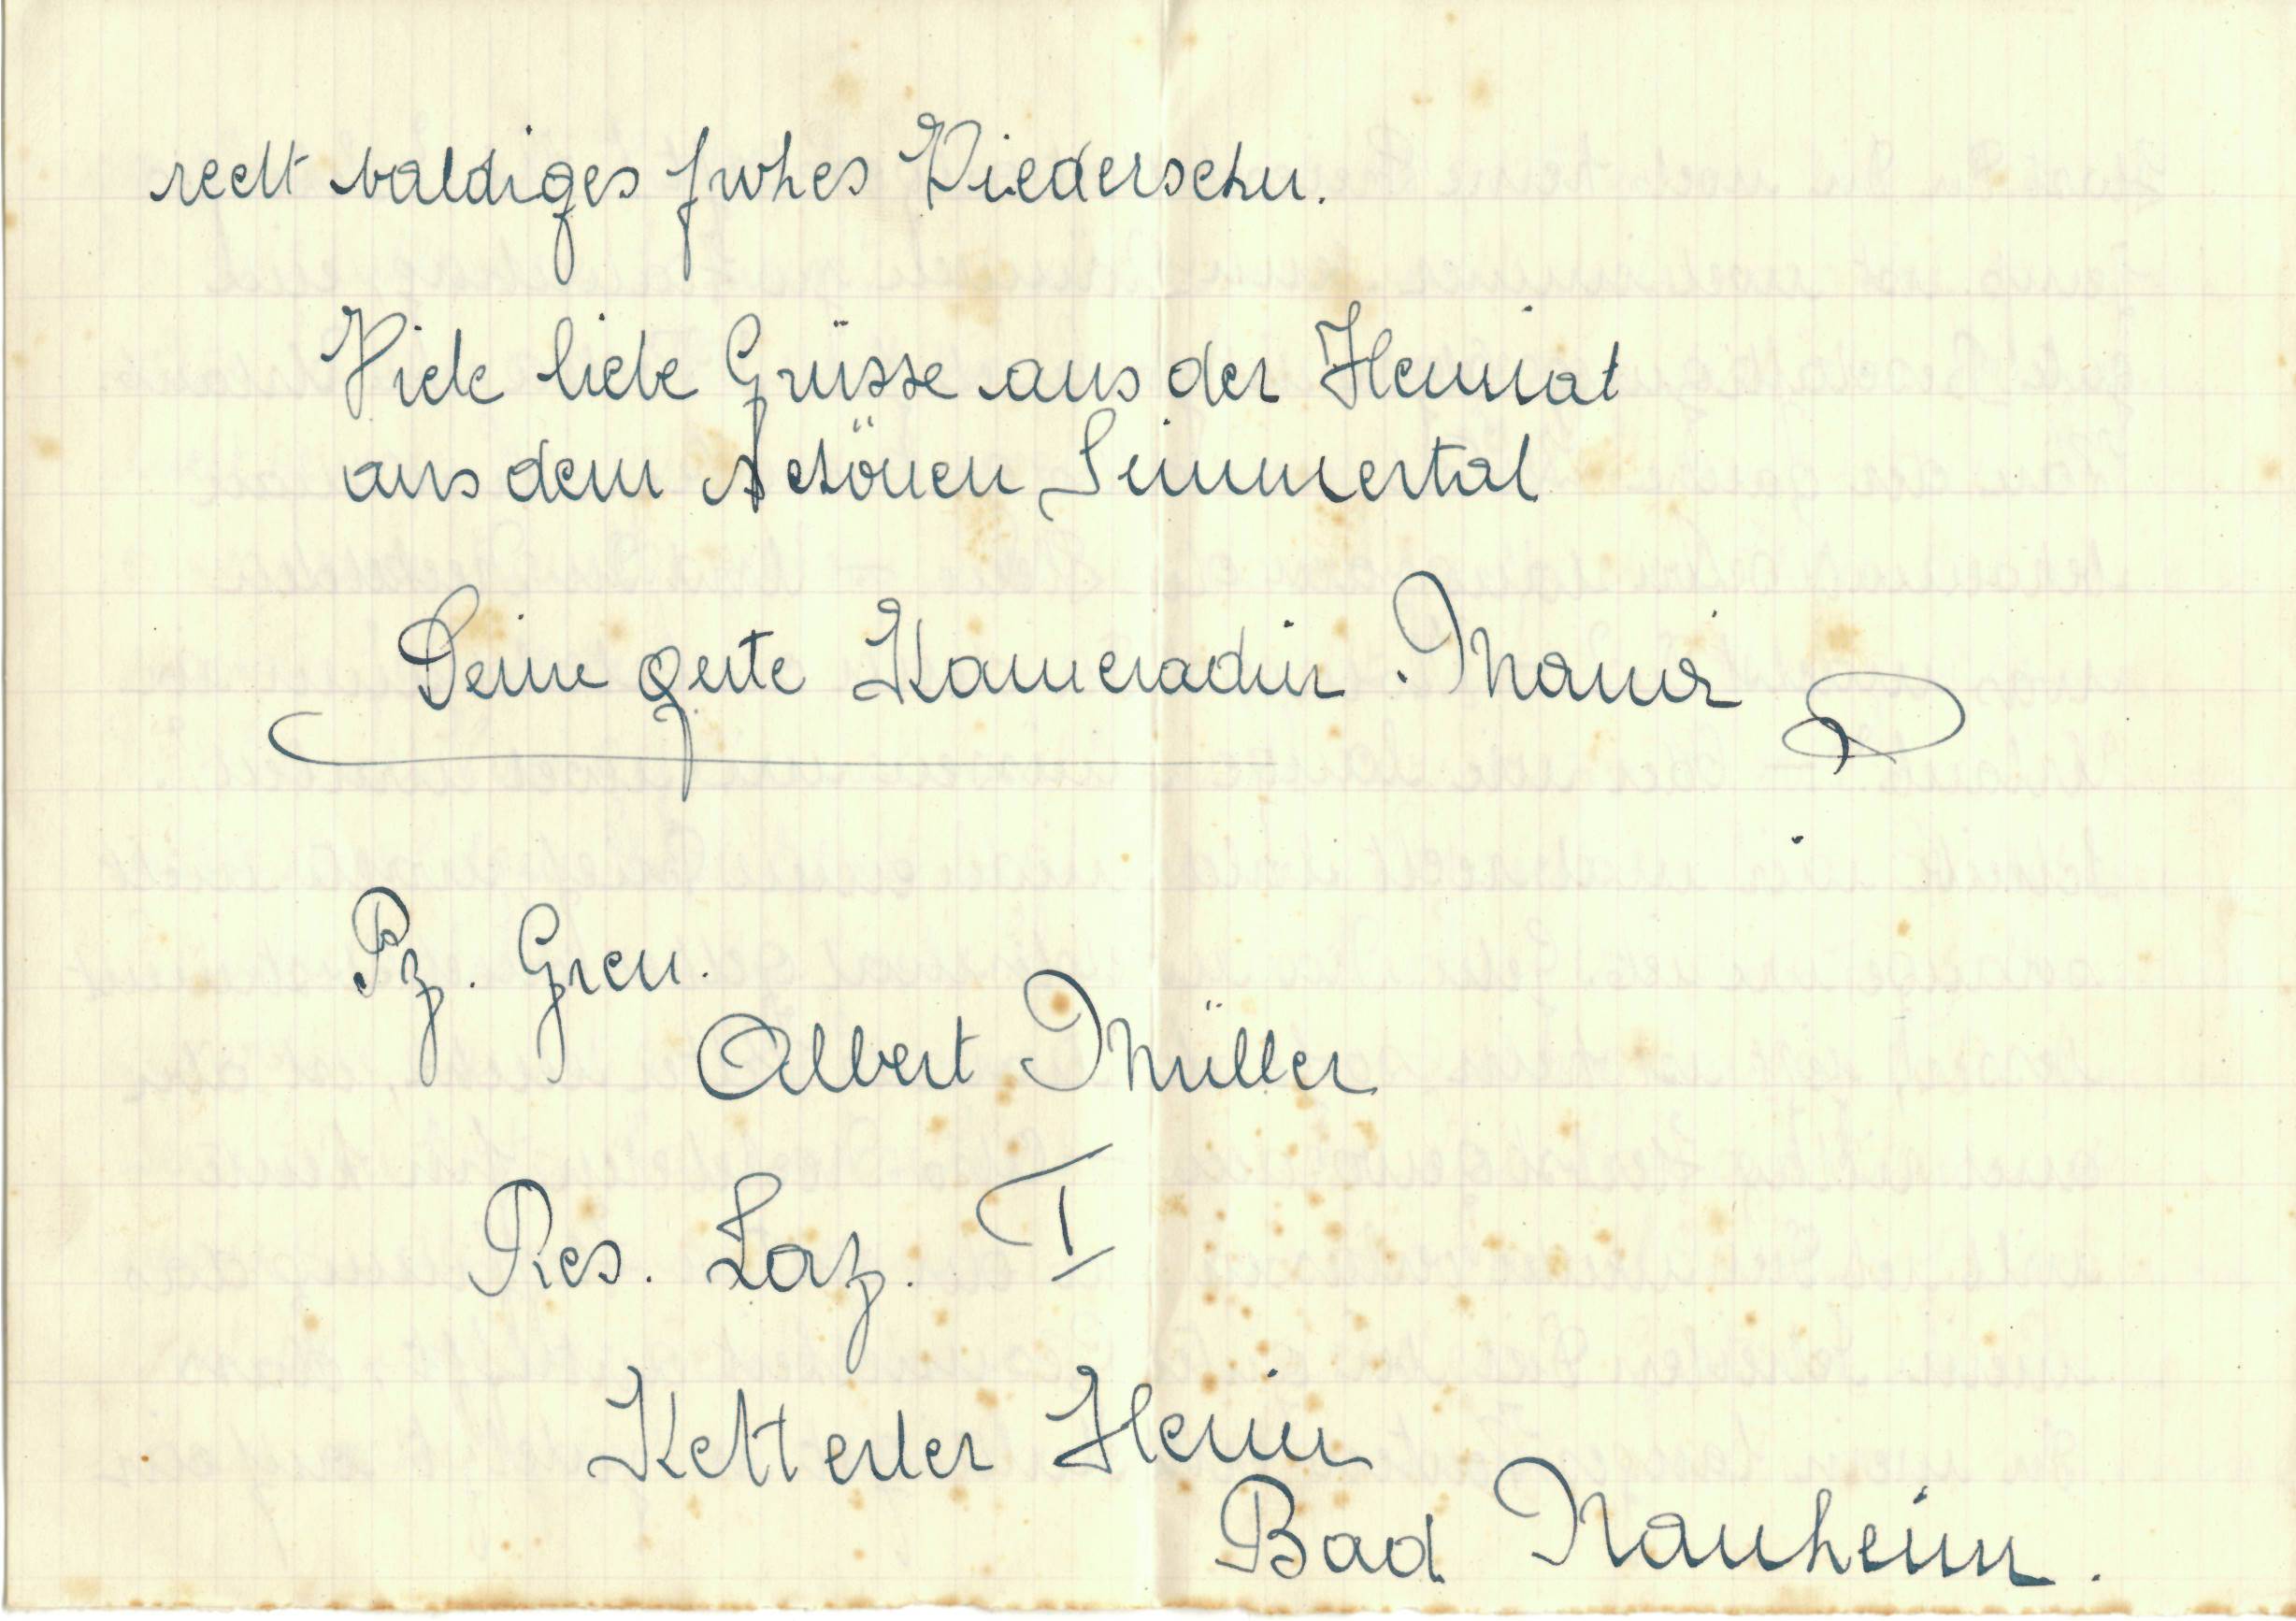 recht baldiges frohes Wiedersehn.
Viele liebe Grüsse aus der Heimat
aus dem schönen Simmertal
Deine gute Kameradin
Pz. Gren.
Albert Müller
Res. Laz. I
Ketterler Heim
Bad Nauheim.